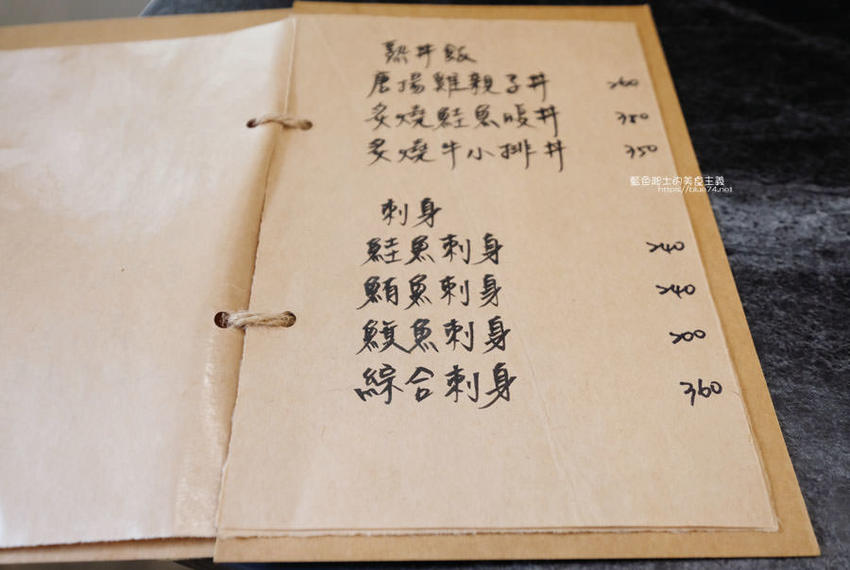 熟丼飯
唐揚雞親子丼 260
炙燒鮭魚腹丼 380
炙燒牛小排丼 350
藍色起士的美食主義
https://blue74.net
刺身
鮭魚刺身 240
鮪魚刺身 240
旗魚刺身 200
綜合刺身 360